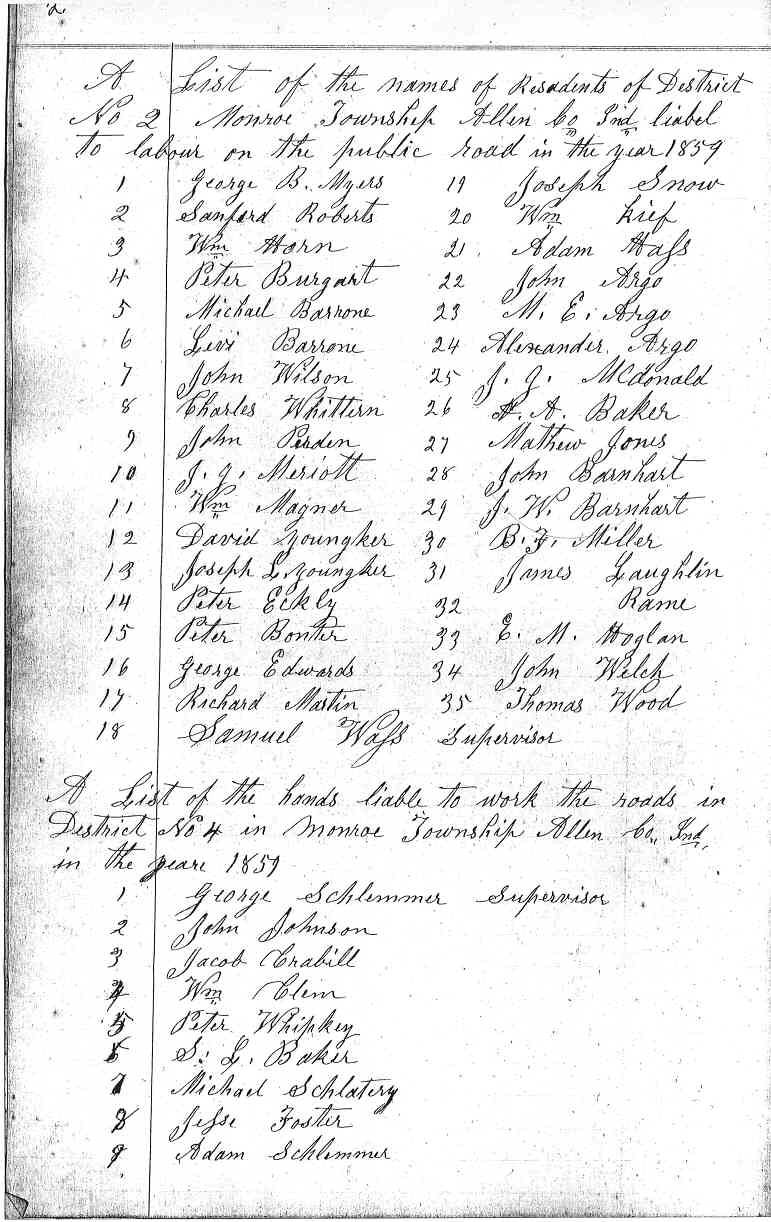 2.
A List of the names of Resadents of District
No 2 Monroe Township Allen Co Ind liabel
to labour on the public road in the year 1859
1 George B. Myers 19 Joseph Snow
2 Sanford Roberts 20 Wm Kief
3 Wm Horn 21 Adam Hass
4 Peter Burgart 22 John Argo
5 Michael Barrone 23 M. E. Argo
6 Levi Barrone 24 Alexander Argo
7 John Wilson 25 J. J. McDonald
8 Charles Whittern 26 A. Baker
9 John 27 Mathew Jones
10 J. J. Meriott 28 John Barnhart
11 Wm Magner 29 J. W. Barnhart
12 David Youngker 30 B. F. Miller
13 Joseph L. Youngker 31 James Laughlin
14 Peter Eckly 32 Rame
15 Peter Bonter 33 E. M. Hoglan
16 George Edwards 34 John Welch
17 Richard Martin 35 Thomas Wood
18 Samuel Wass Supervisor
A List of the hands liable to work the roads in
District No 4 in Monroe Township Allen Co,, Ind,
in the yeare 1859
1 George Schlemmer Supervisor
2 John Johnson
3 Jacob Crabill
4 Wm Clem
5 Peter Whipkey
6 S. L. Baker
7 Michael Schlatery
8 Jesse Foster
9 Adam Schlemmer